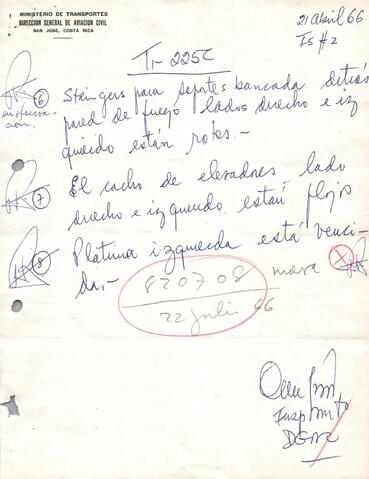 MINISTERIO DE TRANSPORTES
DIRECCION GENERAL DE AVIACION CIVIL
SAN JOSE, COSTA RICA
21 Abril 66
IS #2
TI-225C
6 Stringers para soportes bancada detrás
pared de fuego lados derecho e iz
quierdo están rotos.-
7 El cacho de elevadores lado
derecho e izquierdo están flojos
8 Platina izquierda está venci-
da.-
820708
22 julio 66
X
Insp Mnto
DGAC